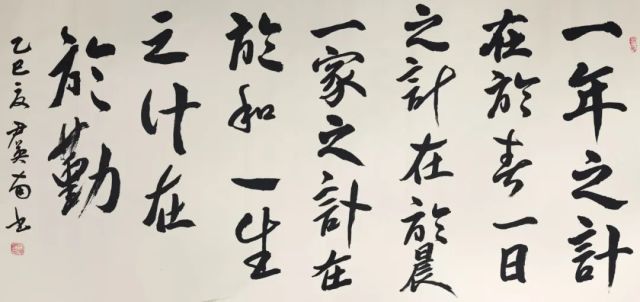 一年之計
在於春一日
之計在於晨
一家之計在
於和一生
之计在
於勤
乙巳夏尹英南书